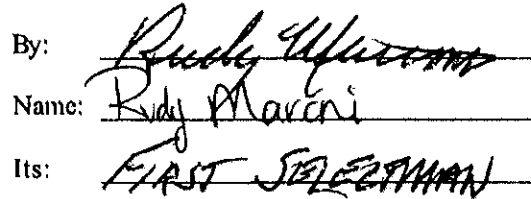 By: Rudy Marconi
Name: Rudy Marconi
Its: FIRST SELECTMAN